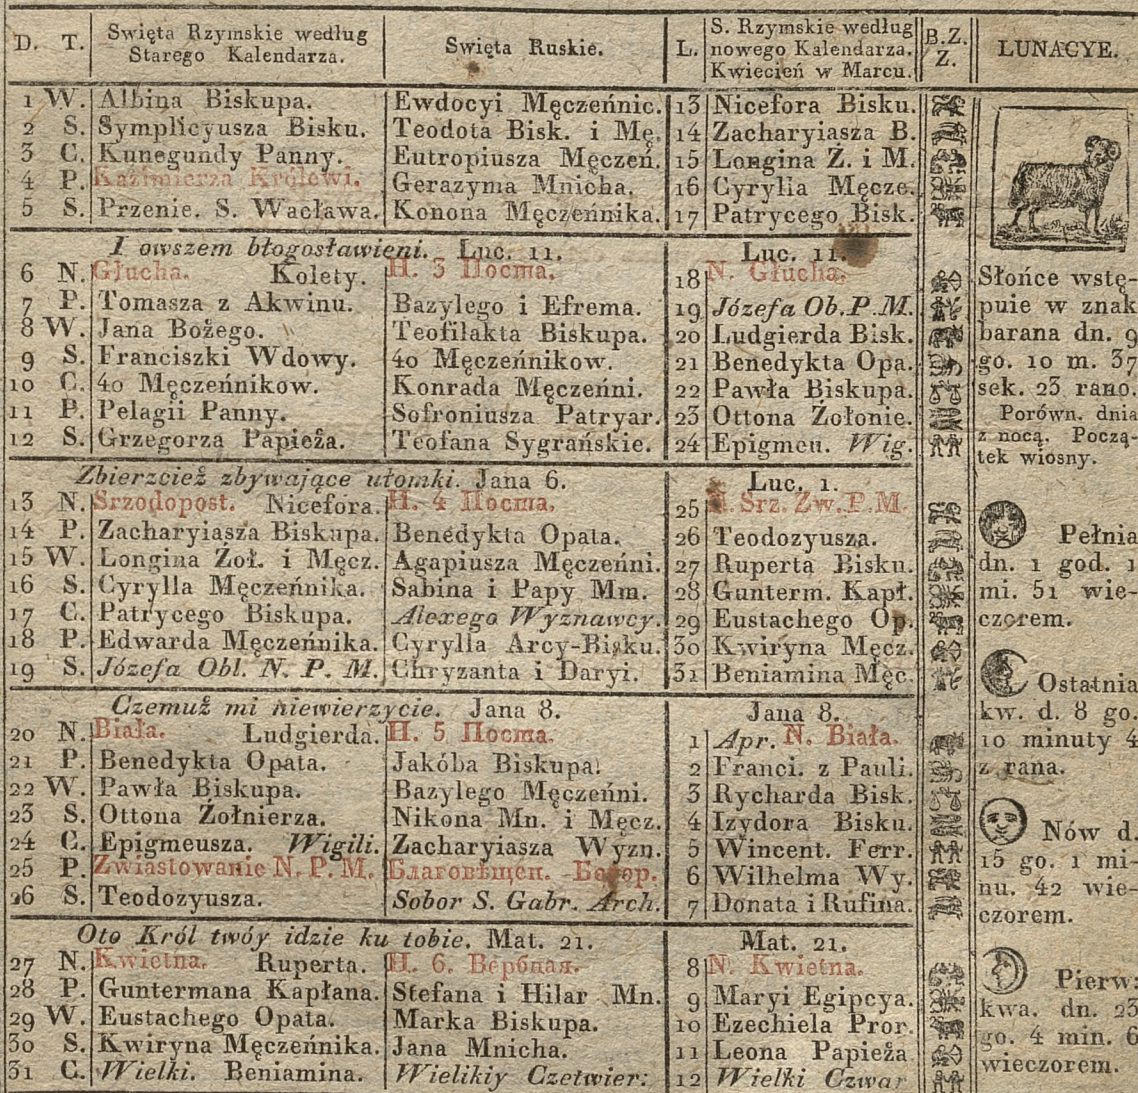 D. T. Swięta Rzymskie według Starego Kalendarza. Swięta Ruskie. L. S. Rzymskie według nowego Kalendarza. Kwiecień w Marcu. B.Z. Z. LUNACYE.
1 W. Albina Biskupa. Ewdocyi Męczeńnic. 13 Nicefora Bisku.
2 S. Symplicyusza Bisku. Teodota Bisk. i Mę. 14 Zacharyiasza B.
3 C. Kunegundy Panny. Eutropiusza Męczeń. 15 Longina Ż. i M.
4 P. Kazimierza Królewi. Gerazyma Mnicha. 16 Cyrylla Męcze.
5 S. Przenie. S. Wacława. Konona Męczeńnika. 17 Patrycego Bisk.
I owszem błogosławieni. Luc. 11. Luc. 11.
6 N. Głucha. Kolety. Н. 3 Поста. 18 N. Głucha.
7 P. Tomasza z Akwinu. Bazylego i Efrema. 19 Józefa Ob. P. M.
8 W. Jana Bożego. Teofilakta Biskupa. 20 Ludgierda Bisk.
9 S. Franciszki Wdowy. 40 Męczeńnikow. 21 Benedykta Opa.
10 C. 40 Męczeńnikow. Konrada Męczeńni. 22 Pawła Biskupa.
11 P. Pelagii Panny. Sofroniusza Patryar. 23 Ottona Żołonie.
12 S. Grzegorza Papieża. Teofana Sygrańskie. 24 Epigmeu. Wig.
Zbierzcież zbywające ułomki. Jana 6. Luc. 1.
13 N. Srzodopost. Nicefora. Н. 4 Поста. 25 N. Srz. Zw. P. M.
14 P. Zacharyiasza Biskupa. Benedykta Opata. 26 Teodozyusza.
15 W. Longina Żoł. i Męcz. Agapiusza Męczeńni. 27 Ruperta Bisku.
16 S. Cyrylla Męczeńnika. Sabina i Papy Mm. 28 Gunterm. Kapł.
17 C. Patrycego Biskupa. Alexego Wyznawcy. 29 Eustachego Op.
18 P. Edwarda Męczeńnika. Cyrylla Arcy-Bisku. 30 Kwiryna Męcz.
19 S. Józefa Obl. N. P. M. Chryzanta i Daryi. 31 Beniamina Męc.
Czemuż mi niewierzycie. Jana 8. Jana 8.
20 N. Biała. Ludgierda. Н. 5 Поста. 1 Apr. N. Biała.
21 P. Benedykta Opata. Jakóba Biskupa. 2 Franci. z Pauli.
22 W. Pawła Biskupa. Bazylego Męczeńni. 3 Rycharda Bisk.
23 S. Ottona Żołnierza. Nikona Mn. i Męcz. 4 Izydora Bisku.
24 C. Epigmeusza. Wigili. Zacharyasza Wyzn. 5 Wincent. Ferr.
25 P. Zwiastowanie N. P. M. Благовѣщен. Богор. 6 Wilhelma Wy.
26 S. Teodozyusza. Sobor S. Gabr. Arch. 7 Donata i Rufina.
Oto Król twóy idzie ku tobie. Mat. 21. Mat. 21.
27 N. Kwietna. Ruperta. Н. 6. Вербная. 8 N. Kwietna.
28 P. Guntermana Kapłana. Stefana i Hilar Mn. 9 Maryi Egipcya.
29 W. Eustachego Opata. Marka Biskupa. 10 Ezechiela Pror.
30 S. Kwiryna Męczeńnika. Jana Mnicha. 11 Leona Papieża
31 C. Wielki. Beniamina. Wielikiy Czetwier: 12 Wielki Czwar
Słońce wstę-
puie w znak
barana dn. 9
go. 10 m. 37
sek. 23 rano.
Porówn. dnia
z nocą. Począ-
tek wiosny.
Pełnia
dn. 1 god. 1
mi. 51 wie-
czorem.
Ostatnia
kw. d. 8 go.
10 minuty 4
z rana.
Nów d.
15 go. 1 mi-
nu. 42 wie-
czorem.
Pierw:
kwa. dn. 23
go. 4 min. 6
wieczorem.